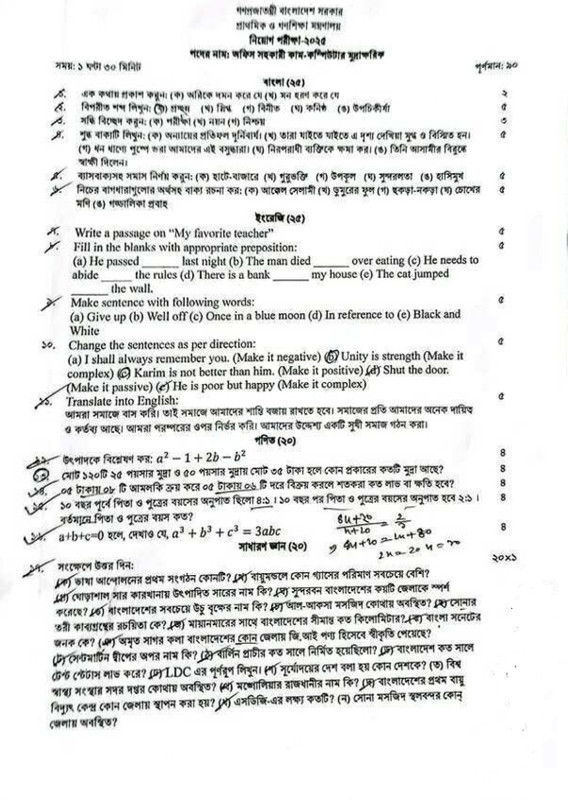 গণপ্রজাতন্ত্রী বাংলাদেশ সরকার
প্রাথমিক ও গণশিক্ষা মন্ত্রণালয়
নিয়োগ পরীক্ষা-২০২৫
পদের নাম: অফিস সহকারী কাম-কম্পিউটার মুদ্রাক্ষরিক
সময়: ১ ঘণ্টা ৩০ মিনিট পূর্ণমান: ৯০
বাংলা (২৫)
১. এক কথায় প্রকাশ করুন: (ক) অরিকে দমন করে যে (খ) মন হরণ করে যে ২
২. বিপরীত শব্দ লিখুন: (ক) প্রচ্ছন্ন (খ) স্নিগ্ধ (গ) বিনীত (ঘ) কনিষ্ঠ (ঙ) উপচিকীর্ষা ৫
৩. সন্ধি বিচ্ছেদ করুন: (ক) পরীক্ষা (খ) নয়ন (গ) নিশ্চয় ৩
৪. শুদ্ধ বাক্যটি লিখুন: (ক) অন্যায়ের প্রতিফল দুর্নিবার্য। (খ) তারা যাইতে যাইতে এ দৃশ্য দেখিয়া মুগ্ধ ও বিস্মিত হন। ৫
(গ) ধন ধান্যে পুষ্পে ভরা আমাদের এই বসুন্ধরা। (ঘ) নিরপরাধী ব্যক্তিকে ক্ষমা কর। (ঙ) তিনি আসামীর বিরুদ্ধে
স্বাক্ষী দিলেন।
৫. ব্যাসবাক্যসহ সমাস নির্ণয় করুন: (ক) হাটে-বাজারে (খ) গুরুভক্তি (গ) উপকূল (ঘ) সুন্দরলতা (ঙ) হাসিমুখ ৫
৬. নিচের বাগধারাগুলোর অর্থসহ বাক্য রচনা কর: (ক) আক্কেল সেলামী (খ) ডুমুরের ফুল (গ) ছকড়া-নকড়া (ঘ) চোখের ৫
মণি (ঙ) গড্ডালিকা প্রবাহ
ইংরেজি (২৫)
৭. Write a passage on "My favorite teacher" ৫
৮. Fill in the blanks with appropriate preposition: ৫
(a) He passed ______ last night (b) The man died ______ over eating (c) He needs to
abide _____ the rules (d) There is a bank ______ my house (e) The cat jumped
______ the wall.
৯. Make sentence with following words: ৫
(a) Give up (b) Well off (c) Once in a blue moon (d) In reference to (e) Black and
White
১০. Change the sentences as per direction: ৫
(a) I shall always remember you. (Make it negative) (b) Unity is strength (Make it
complex) (c) Karim is not better than him. (Make it positive) (d) Shut the door.
(Make it passive) (e) He is poor but happy (Make it complex)
১১. Translate into English: ৫
আমরা সমাজে বাস করি। তাই সমাজে আমাদের শান্তি বজায় রাখতে হবে। সমাজের প্রতি আমাদের অনেক দায়িত্ব
ও কর্তব্য আছে। আমরা পরস্পরের ওপর নির্ভর করি। আমাদের উদ্দেশ্য একটি সুখী সমাজ গঠন করা।
গণিত (২০)
১২. উৎপাদকে বিশ্লেষণ কর: a² − 1 + 2b − b² ৪
১৩. মোট ১২০টি ২৫ পয়সার মুদ্রা ও ৫০ পয়সার মুদ্রায় মোট ৩৫ টাকা হলে কোন প্রকারের কতটি মুদ্রা আছে? ৪
১৪. ০৫ টাকায় ০৮ টি আমলকি ক্রয় করে ০৫ টাকায় ০৬ টি দরে বিক্রয় করলে শতকরা কত লাভ বা ক্ষতি হবে? ৪
১৫. ১০ বছর পূর্বে পিতা ও পুত্রের বয়সের অনুপাত ছিলো ৪:১। ১০ বছর পর পিতা ও পুত্রের বয়সের অনুপাত হবে ২:১। ৪
বর্তমানে পিতা ও পুত্রের বয়স কত?
১৬. a+b+c=0 হলে, দেখাও যে, a³ + b³ + c³ = 3abc ৪
সাধারণ জ্ঞান (২০)
১৭. সংক্ষেপে উত্তর দিন: ২০x১
(ক) ভাষা আন্দোলনের প্রথম সংগঠন কোনটি? (খ) বায়ুমন্ডলে কোন গ্যাসের পরিমাণ সবচেয়ে বেশি?
(গ) ঘোড়াশাল সার কারখানায় উৎপাদিত সারের নাম কি? (ঘ) সুন্দরবন বাংলাদেশের কয়টি জেলাকে স্পর্শ
করেছে? (ঙ) বাংলাদেশের সবচেয়ে উচু বৃক্ষের নাম কি? (চ) আল-আকসা মসজিদ কোথায় অবস্থিত? (ছ) সোনার
তরী কাব্যগ্রন্থের রচয়িতা কে? (জ) মায়ানমারের সাথে বাংলাদেশের সীমান্ত কত কিলোমিটার? (ঝ) বাংলা সনেটের
জনক কে? (ঞ) অমৃত সাগর কলা বাংলাদেশের কোন জেলায় জি,আই পণ্য হিসেবে স্বীকৃতি পেয়েছে?
(ট) সেন্টমার্টিন দ্বীপের অপর নাম কি? (ঠ) বার্লিন প্রাচীর কত সালে নির্মিত হয়েছিলো? (ড) বাংলাদেশ কত সালে
টেস্ট স্টেটাস লাভ করে? (ঢ) LDC এর পূর্ণরূপ লিখুন। (ণ) সূর্যোদয়ের দেশ বলা হয় কোন দেশকে? (ত) বিশ্ব
স্বাস্থ্য সংস্থার সদর দপ্তর কোথায় অবস্থিত? (থ) মঙ্গোলিয়ার রাজধানীর নাম কি? (দ) বাংলাদেশের প্রথম বায়ু
বিদ্যুৎ কেন্দ্র কোন জেলায় স্থাপন করা হয়? (ধ) এসডিজি-এর লক্ষ্য কতটি? (ন) সোনা মসজিদ স্থলবন্দর কোন্
জেলায় অবস্থিত?